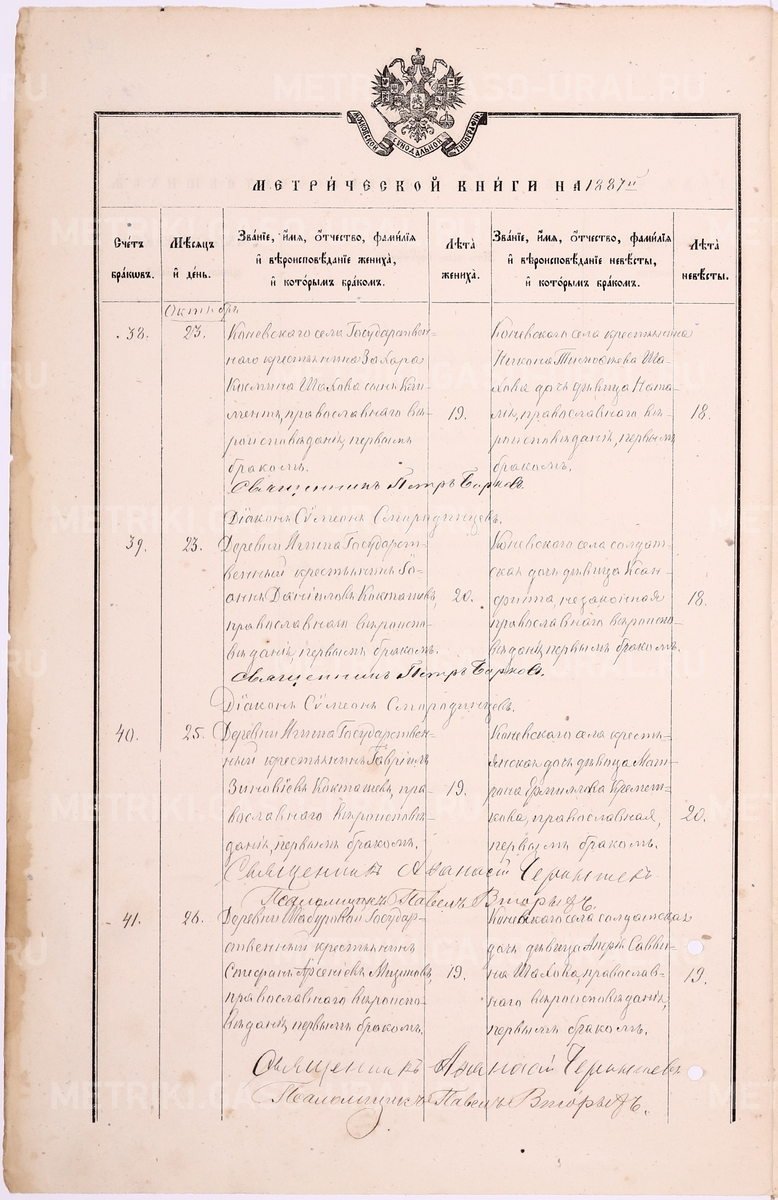 МОСКОВСКОЙ СѴНОДАЛЬНОЙ ТИПОГРАФІИ
МЕТРИ́ЧЕСКОЙ КНИ́ГИ НА 1887 г.
Счетъ браковъ.
Мѣсяцъ и день.
Званіе, имя, отчество, фамилія и вѣроисповѣданіе жениха, и которымъ бракомъ.
Лѣта жениха.
Званіе, имя, отчество, фамилія и вѣроисповѣданіе невѣсты, и которымъ бракомъ.
Лѣта невѣсты.
Октябрь
38.
23.
Коневскаго села Государствен-
наго крестьянина Захара
Космина Шахова сынъ Кли-
ментъ, православнаго вѣ-
роисповѣданія, первымъ
бракомъ.
19.
Коневскаго села крестьянина
Никона Тимофѣева Ша-
хова дочь дѣвица Ната-
лія, православнаго вѣ-
роисповѣданія, первымъ
бракомъ.
18.
Священникъ Петръ Барковъ.
Діаконъ Сѵмеонъ Смородинцевъ.
39.
23.
Деревни Ягина Государст-
венный крестьянинъ Іо-
аннъ Даніиловъ Кокташевъ,
православнаго вѣроиспо-
вѣданія, первымъ бракомъ.
20.
Коневскаго села солдат-
ская дочь дѣвица Ксан-
фиппа, незаконная
православнаго вѣроиспо-
вѣданія, первымъ бракомъ.
18.
Священникъ Петръ Барковъ.
Діаконъ Сѵмеонъ Смородинцевъ.
40.
25.
Деревни Ягина Государствен-
ный крестьянинъ Гавріилъ
Зиновіевъ Кокташевъ, пра-
вославнаго вѣроисповѣ-
данія, первымъ бракомъ.
19.
Коневскаго села кресть-
янская дочь дѣвица Мат-
рона
православная,
первымъ бракомъ.
20.
Священникъ Аѳанасій Чернышевъ
Псаломщикъ Павелъ Вторыхъ.
41.
26.
Деревни Шабуровой Государ-
ственный крестьянинъ
Стефанъ Арсеніевъ Мизиновъ,
православнаго вѣроиспо-
вѣданія, первымъ бракомъ.
19.
Коневскаго села солдатская
дочь дѣвица Савви-
на Шахова, православ-
наго вѣроисповѣданія,
первымъ бракомъ.
19.
Священникъ Аѳанасій Чернышевъ
Псаломщикъ Павелъ Вторыхъ.
METRIKI.GASO-URAL.RU